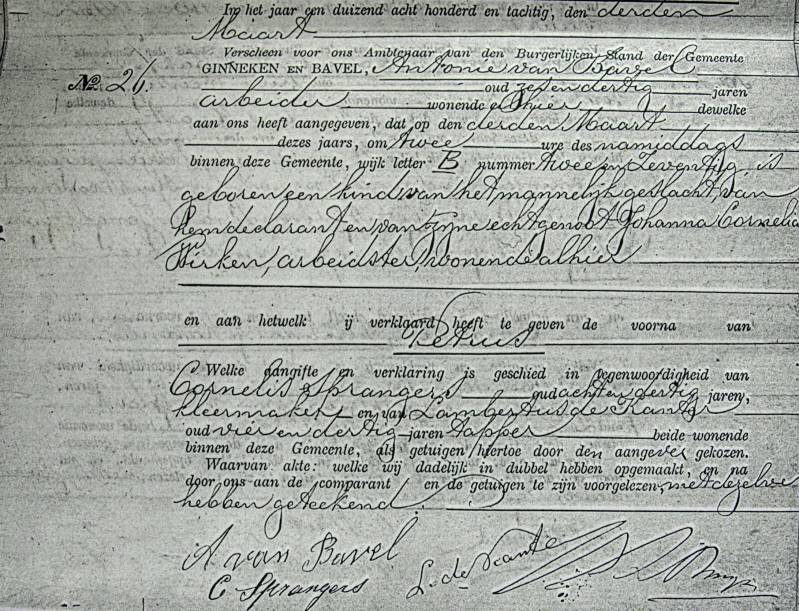 In het jaar een duizend acht honderd en tachtig, den derden
Maart
Verscheen voor ons Ambtenaar van den Burgerlijken Stand der Gemeente
No. 26. GINNEKEN EN BAVEL, Antonie van Bavel
oud zes en dertig jaren
arbeider wonende alhier dewelke
aan ons heeft aangegeven, dat op den derden Maart
dezes jaars, om twee ure des namiddags
binnen deze Gemeente, wijk letter B nummer twee en zeventig, is
geboren een kind van het mannelijk geslacht van
hem declarant en van zijne echtgenoot Johanna Cornelia
Wirken, arbeidster, wonende alhier
en aan hetwelk ij verklaard heeft te geven de voorna van
Petrus
Welke aangifte en verklaring is geschied in tegenwoordigheid van
Cornelis Sprangers oud acht en dertig jaren,
kleermaker en van Lambertus de Kanter
oud vier en dertig jaren tapper beide wonende
binnen deze Gemeente, als getuigen hiertoe door den aangever gekozen.
Waarvan akte: welke wij dadelijk in dubbel hebben opgemaakt, en na
door ons aan de comparant en de getuigen te zijn voorgelezen, met dezelve
hebben geteekend.
A van Bavel
L. de Kante
C Sprangers